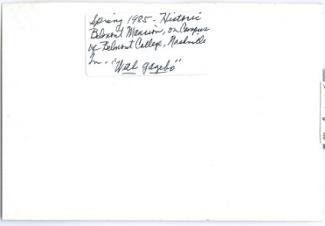 Spring 1985 - Historic
Belmont Mansion, on Campus
of Belmont College, Nashville
Tn. - "Well gazebo"